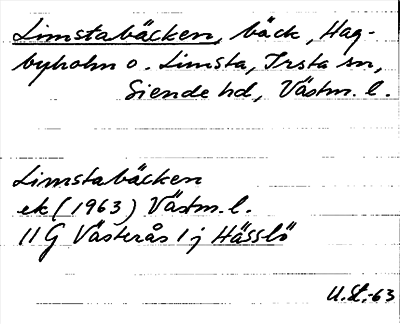 Limstabäcken, bäck, Hag-
byholm o. Limsta, Irsta sn,
Siende hd, Västm. l.
Limstabäcken
ek (1963) Västm. l.
11 G Västerås 1 j Hässlö
U.St.-63